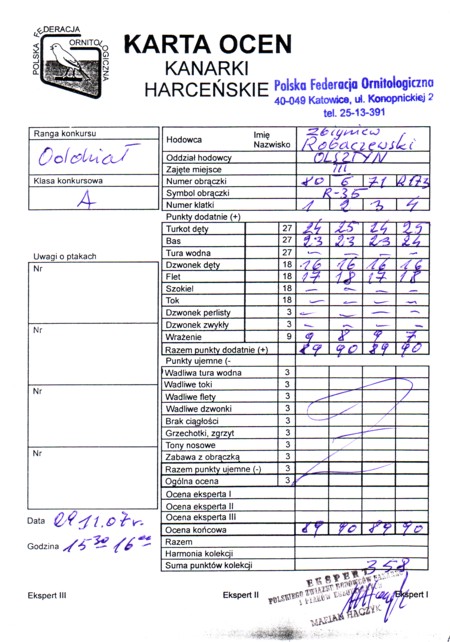 POLSKA FEDERACJA ORNITOLOGICZNA
KARTA OCEN
KANARKI
HARCEŃSKIE
Polska Federacja Ornitologiczna
40-049 Katowice, ul. Konopnickiej 2
tel. 25-13-391
Ranga konkursu
Oddział
Klasa konkursowa
A
Hodowca Imię Zbigniew
Nazwisko Robaczewski
Oddział hodowcy OLSZTYN
Zajęte miejsce III
Numer obrączki 80 6 71 R173
Symbol obrączki R-35
Numer klatki 1 2 3 4
Punkty dodatnie (+)
Turkot dęty 27 24 25 24 25
Bas 27 23 23 23 24
Tura wodna 27 – – – –
Dzwonek dęty 18 16 16 16 16
Flet 18 17 18 17 18
Szokiel 18 – – – –
Tok 18 – – – –
Dzwonek perlisty 3 – – – –
Dzwonek zwykły 3 – – – –
Wrażenie 9 9 8 9 7
Razem punkty dodatnie (+) 89 90 89 90
Punkty ujemne (-)
Wadliwa tura wodna 3
Wadliwe toki 3
Wadliwe flety 3
Wadliwe dzwonki 3
Brak ciągłości 3
Grzechotki, zgrzyt 3
Tony nosowe 3
Zabawa z obrączką 3
Razem punkty ujemne (-) 3
Ogólna ocena 3
Ocena eksperta I
Ocena eksperta II
Ocena eksperta III
Ocena końcowa 89 90 89 90
Razem
Harmonia kolekcji
Suma punktów kolekcji 358
Uwagi o ptakach
Nr
Nr
Nr
Nr
Data 09 11.07r.
Godzina 15 30 16 00
Ekspert III
Ekspert II
Ekspert I
EKSPERT
POLSKIEGO ZWIĄZKU HODOWCÓW
MARIAN HACZYK